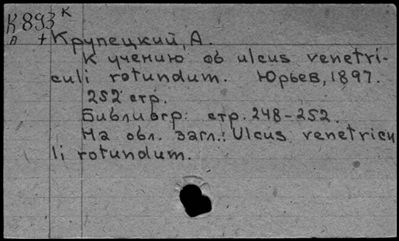 К893 К
А +Крупецкий, А.
К учению об ulcus venetri-
culi rotundum. Юрьев, 1897.
252 стр.
Библиогр: стр. 248-252.
На обл. загл.: Ulcus venetricu
li rotundum.